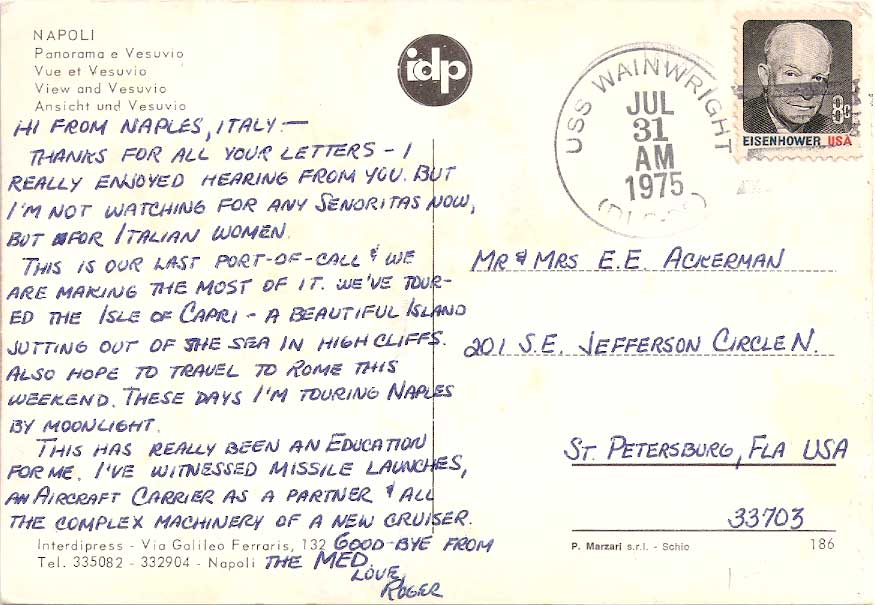 NAPOLI
Panorama e Vesuvio
Vue et Vesuvio
View and Vesuvio
Ansicht und Vesuvio
idp
USS WAINWRIGHT
JUL
31
AM
1975
8c
EISENHOWER USA
HI FROM NAPLES, ITALY:—
THANKS FOR ALL YOUR LETTERS - I
REALLY ENJOYED HEARING FROM YOU. BUT
I'M NOT WATCHING FOR ANY SENORITAS NOW,
BUT FOR ITALIAN WOMEN.
THIS IS OUR LAST PORT-OF-CALL & WE
ARE MAKING THE MOST OF IT. WE'VE TOUR-
ED THE ISLE OF CAPRI - A BEAUTIFUL ISLAND
JUTTING OUT OF THE SEA IN HIGH CLIFFS.
ALSO HOPE TO TRAVEL TO ROME THIS
WEEKEND. THESE DAYS I'M TOURING NAPLES
BY MOONLIGHT.
THIS HAS REALLY BEEN AN EDUCATION
FOR ME. I'VE WITNESSED MISSILE LAUNCHES,
AN AIRCRAFT CARRIER AS A PARTNER & ALL
THE COMPLEX MACHINERY OF A NEW CRUISER.
GOOD-BYE FROM
THE MED.
LOVE,
ROGER
MR & MRS E.E. ACKERMAN
201 S.E. JEFFERSON CIRCLE N.
ST. PETERSBURG, FLA USA
33703
Interdipress - Via Galileo Ferraris, 132
Tel. 335082 - 332904 - Napoli
P. Marzari s.r.l. - Schio
186